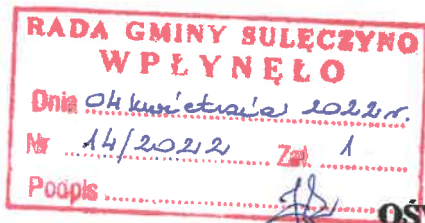 RADA GMINY SULĘCZYNO
WPŁYNĘŁO
Dnia 04 kwietnia 2022 r.
Nr 14/2022 Zał. 1
Podpis
OŚW